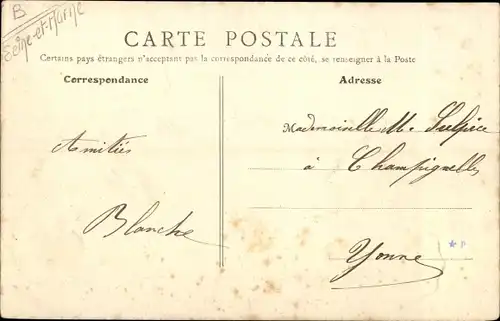 B
Seine-et-Marne
CARTE POSTALE
Certains pays étrangers n'acceptant pas la correspondance de ce côté, se renseigner à la Poste
Correspondance
Adresse
Mademoiselle M. Sulpice
à Champignelles
Yonne
Amitiés
Blanche